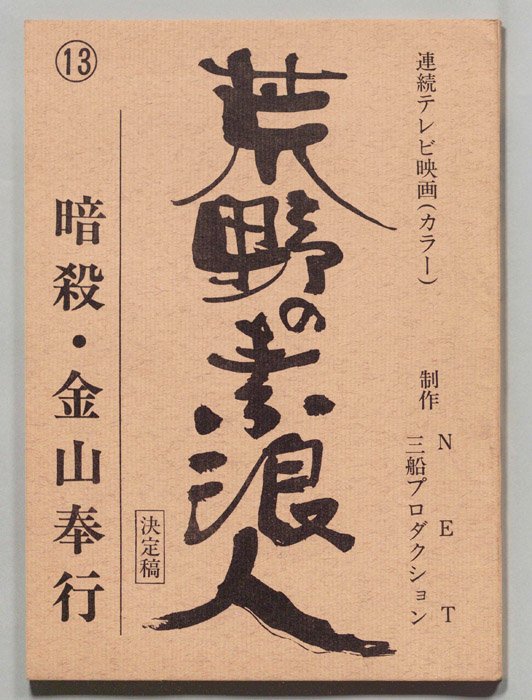 連続テレビ映画(カラー)
制作 NET
三船プロダクション
荒野の素浪人
決定稿
⑬
暗殺・金山奉行